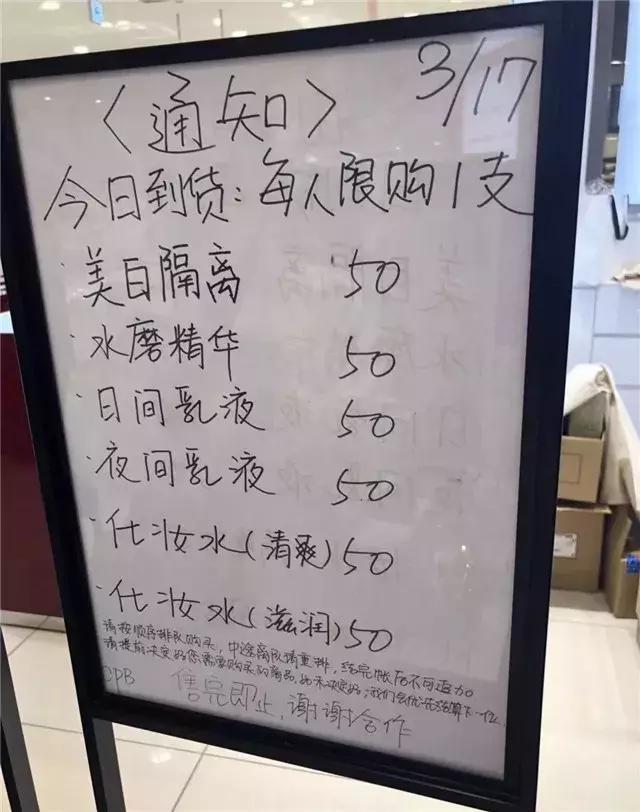 〈通知〉 3/17
今日到货：每人限购1支
·美白隔离 50
·水磨精华 50
·日间乳液 50
·夜间乳液 50
·化妆水(清爽) 50
·化妆水(滋润) 50
请按顺序排队购买，中途离队请重排，结完帐后不可追加
请提前决定好您需要购买的商品，如未决定好，我们会优先结算下一位
CPB 售完即止，谢谢合作